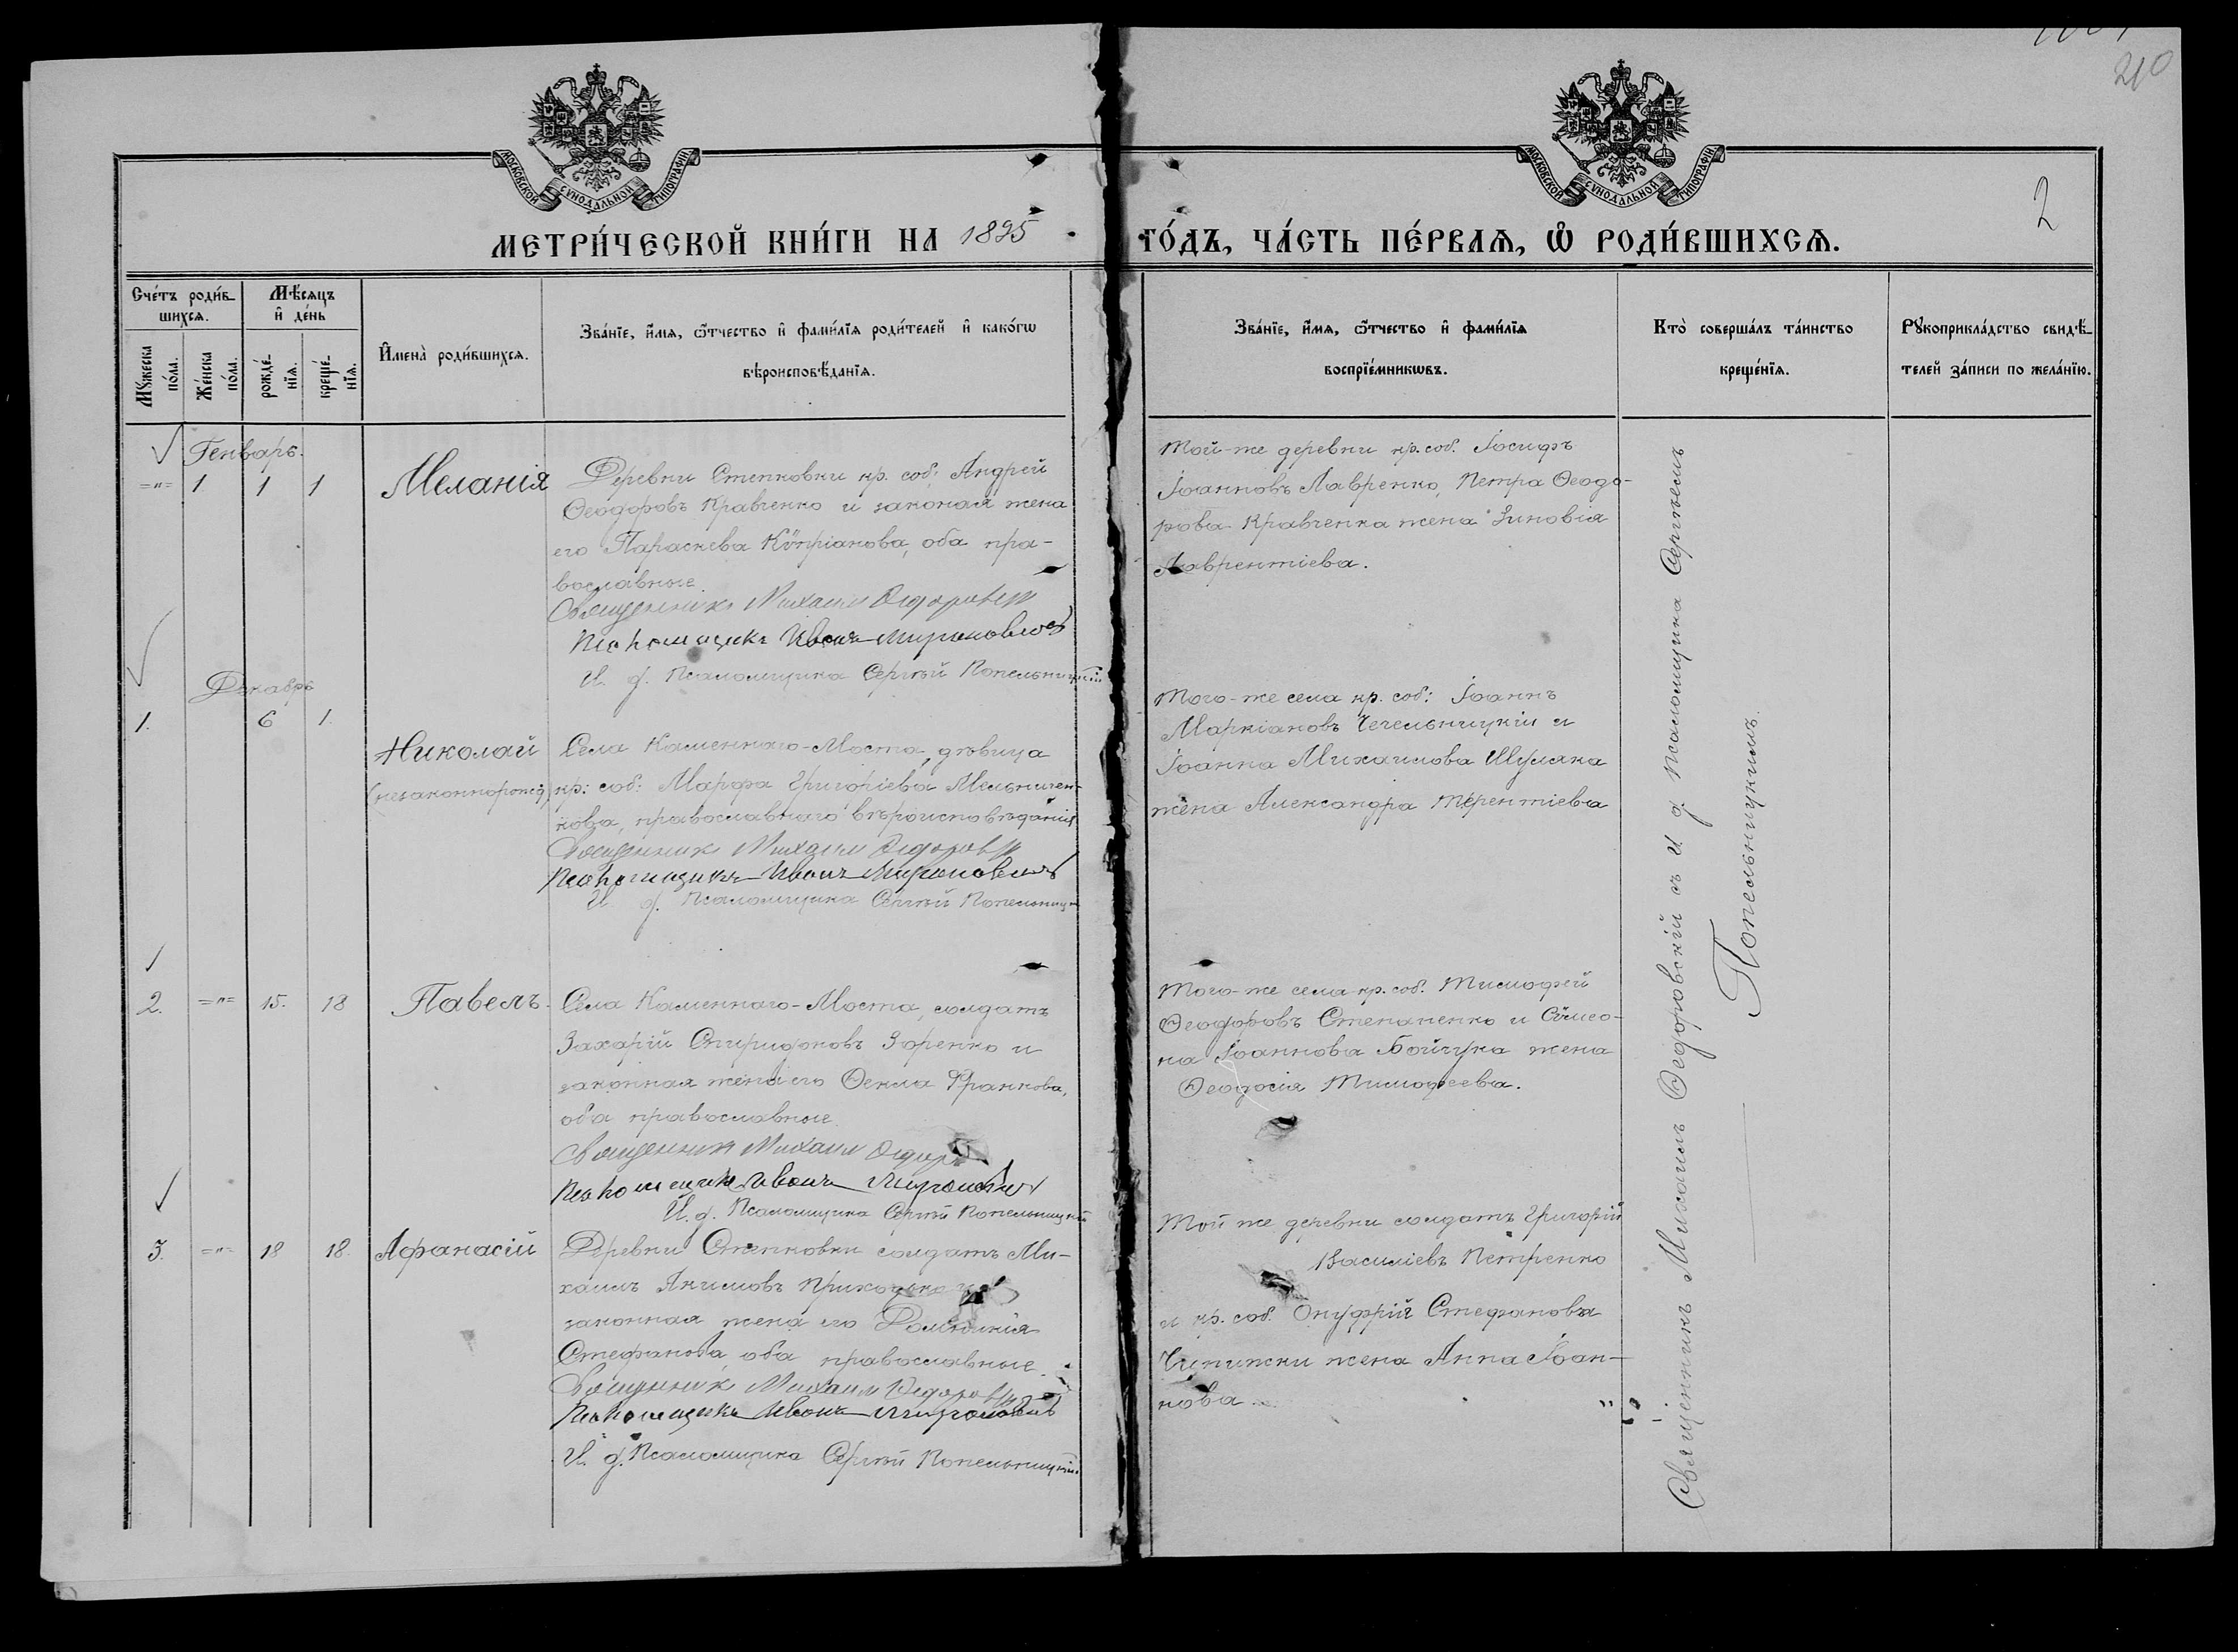 210
2
МОСКОВСКОЙ СУНОДАЛЬНОЙ ТИПОГРАФІИ.
МОСКОВСКОЙ СУНОДАЛЬНОЙ ТИПОГРАФІИ.
МЕТРИ́ЧЕСКОЙ КНИ́ГИ НА 1895
ГО́ДЪ, ЧА́СТЬ ПЕ́РВАѦ, Ѽ РОДИ́ВШИХСѦ.
Сче́тъ роди́в-
шихсѧ.
Мꙋжеска по́ла.
Же́нска по́ла.
Мѣ́сѧцъ
и҆ де́нь
рожде́-
нїѧ.
креще́-
нїѧ.
И҆мена̀ роди́вшихсѧ.
Зва́нїе, и҆́мѧ, ѻ҆́тчество и҆ фами́лїѧ роди́телей и҆ како́гѡ
вѣроисповѣ́данїѧ.
Зва́нїе, и҆́мѧ, ѻ҆́тчество и҆ фами́лїѧ
воспрїе́мникѡвъ.
Кто̀ соверша́лъ та́инство
креще́нїѧ.
Рꙋкоприкла́дство свидѣ́-
телей за́писи по жела́нїю.
Генварь.
=„= 1 1 1 Меланія
Деревни Степковки кр. соб: Андрей
Ѳеодоровъ Кравченко и законая жена
его Параскева Кѵпріанова, оба пра-
вославные
Священникъ Михаилъ Ѳедоровскій
Псаломщикъ Иванъ Мироновичъ
И. д. Псаломщика Сергѣй Попельницкій
Той-же деревни кр. соб. Іосифъ
Іоанновъ Лавренко, Петра Ѳеодо-
рова Кравченка жена Зиновія
Лаврентіева.
Декабрь
1. 6 1
Николай
(незаконнорожд)
Села Каменнаго-Моста, дѣвица
кр: соб: Марфа Григоріева Мельничен-
кова, православнаго вѣроисповѣданія
Священникъ Михаилъ Ѳедоровскій
Псаломщикъ Иванъ Мироновичъ
И. д. Псаломщика Сергѣй Попельниц
Того-же села кр. соб: Іоаннъ
Маркіановъ Чечельницкій и
Іоанна Михаилова Шуляка
жена Александра Терентіева
2. =„= 15. 18 Павелъ.
Села Каменнаго-Моста, солдатъ
Захарій Спиридоновъ Зоренко и
законная жена его Ѳекла Франкова,
оба православные
Священникъ Михаилъ Ѳедоров
Псаломщикъ Иванъ Мироновичъ
И. д. Псаломщика Сергѣй Попельницкій
Того-же села кр. соб. Тимофей
Ѳеодоровъ Степаненко и Сѵмео-
на Іоаннова Бойчука жена
Ѳеодосія Тимофеева.
3. =„= 18 18. Афанасій
Деревни Степковки солдатъ Ми-
хаилъ Акимовъ Приходько и
законная жена его Домникія
Стефанова, оба православные.
Священникъ Михаилъ Ѳедоровскій
Псаломщикъ Иванъ Мироновичъ
И. д. Псаломщика Сергѣй Попельницкій
Той же деревни солдатъ Григорій
Василіевъ Петренко
и кр. соб. Онуфрій Стефанова
жена Анна Іоан-
нова
Священникъ Михаилъ Ѳедоровскій съ И д. Псаломщика Сергѣемъ
Попельницкимъ.